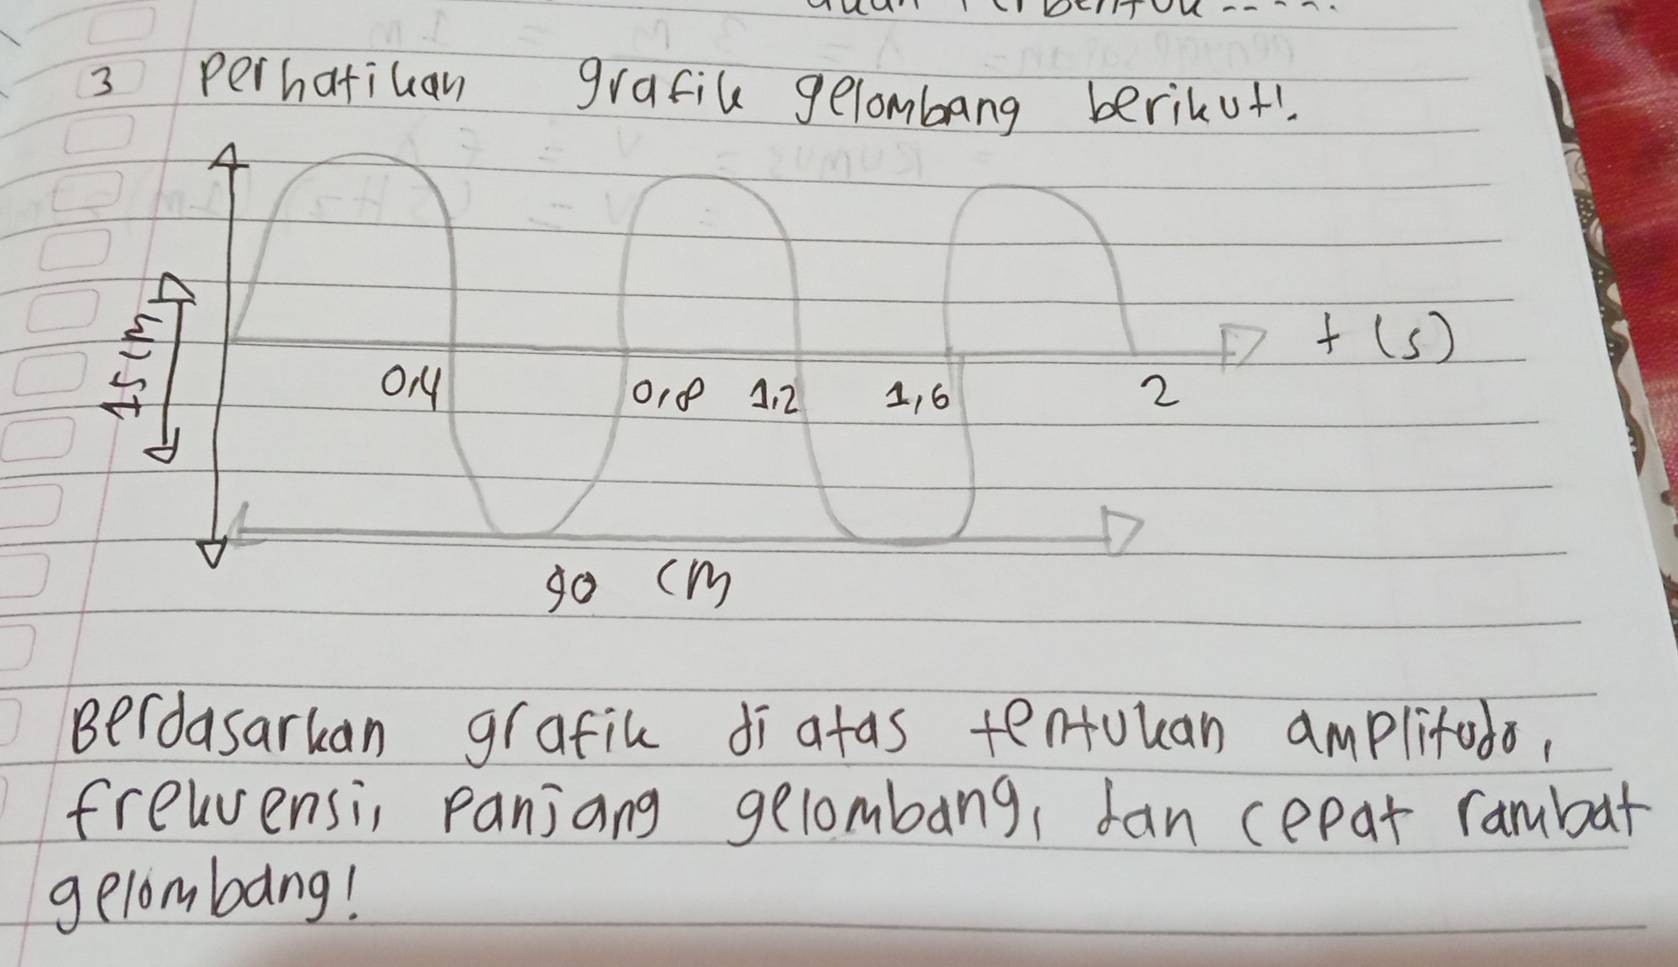 3 Perhatikan grafik gelombang berikut!
15 cm
t (s)
0,4 0,8 1,2 1,6 2
90 cm
Berdasarkan grafik di atas tentukan amplitudo,
frekuensi, panjang gelombang, dan cepat rambat
gelombang!